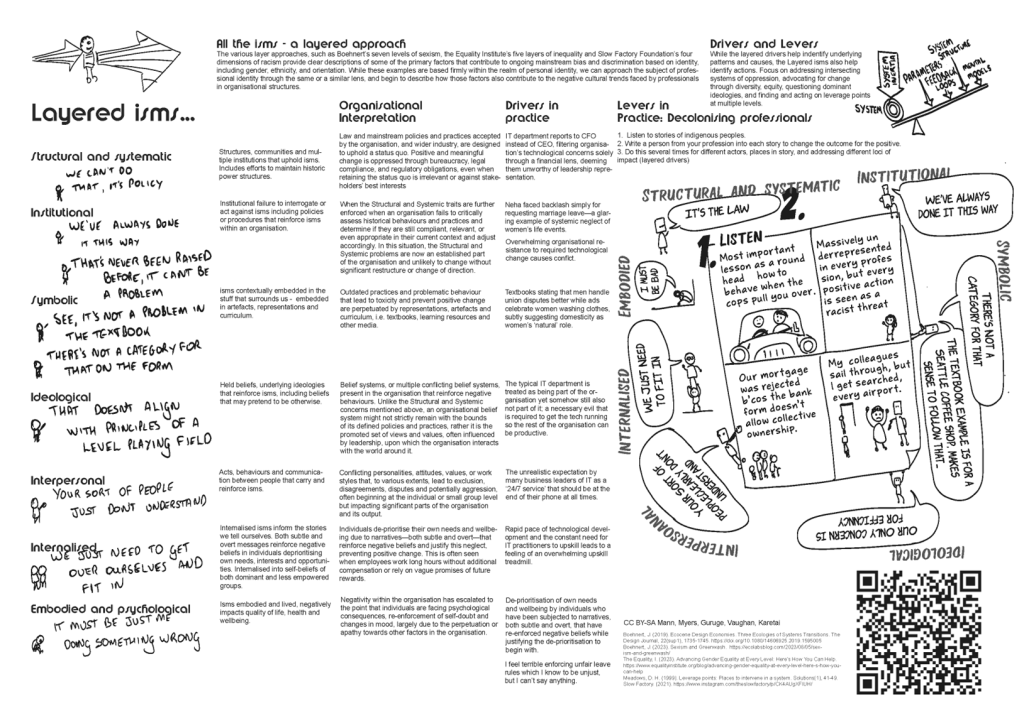 All the isms - a layered approach
The various layer approaches, such as Boehnert's seven levels of sexism, the Equality Institute's five layers of inequality and Slow Factory Foundation's four
dimensions of racism provide clear descriptions of some of the primary factors that contribute to ongoing mainstream bias and discrimination based on identity,
including gender, ethnicity, and orientation. While these examples are based firmly within the realm of personal identity, we can approach the subject of profes-
sional identity through the same or a similar lens, and begin to describe how those factors also contribute to the negative cultural trends faced by professionals
in organisational structures.
Drivers and Levers
While the layered drivers help indentify underlying
patterns and causes, the Layered isms also help
identify actions. Focus on addressing intersecting
systems of oppression, advocating for change
through diversity, equity, questioning dominant
ideologies, and finding and acting on leverage points
at multiple levels.
SYSTEM INERTIA
SYSTEM
PARAMETERS
FEEDBACK LOOPS
SYSTEM STRUCTURE
MENTAL MODELS
Layered isms...
Organisational
Interpretation
Drivers in
practice
Levers in
Practice: Decolonising professionals
1. Listen to stories of indigenous peoples.
2. Write a person from your profession into each story to change the outcome for the positive.
3. Do this several times for different actors, places in story, and addressing different loci of
impact (layered drivers)
Structural and systematic
WE CAN'T DO
THAT, IT'S POLICY
Structures, communities and mul-
tiple institutions that uphold isms.
Includes efforts to maintain historic
power structures.
Law and mainstream policies and practices accepted
by the organisation, and wider industry, are designed
to uphold a status quo. Positive and meaningful
change is oppressed through bureaucracy, legal
compliance, and regulatory obligations, even when
retaining the status quo is irrelevant or against stake-
holders' best interests
IT department reports to CFO
instead of CEO, filtering organisa-
tion's technological concerns solely
through a financial lens, deeming
them unworthy of leadership repre-
sentation.
Institutional
WE'VE ALWAYS DONE
IT THIS WAY
THAT'S NEVER BEEN RAISED
BEFORE, IT CAN'T BE
A PROBLEM
Institutional failure to interrogate or
act against isms including policies
or procedures that reinforce isms
within an organisation.
When the Structural and Systemic traits are further
enforced when an organisation fails to critically
assess historical behaviours and practices and
determine if they are still compliant, relevant, or
even appropriate in their current context and adjust
accordingly. In this situation, the Structural and
Systemic problems are now an established part
of the organisation and unlikely to change without
significant restructure or change of direction.
Neha faced backlash simply for
requesting marriage leave—a glar-
ing example of systemic neglect of
women's life events.
Overwhelming organisational re-
sistance to required technological
change causes conflict.
Symbolic
SEE, IT'S NOT A PROBLEM IN
THE TEXTBOOK
THERE'S NOT A CATEGORY FOR
THAT ON THE FORM
isms contextually embedded in the
stuff that surrounds us - embedded
in artefacts, representations and
curriculum.
Outdated practices and problematic behaviour
that lead to toxicity and prevent positive change
are perpetuated by representations, artefacts and
curriculum, i.e. textbooks, learning resources and
other media.
Textbooks stating that men handle
union disputes better while ads
celebrate women washing clothes,
subtly suggesting domesticity as
women's 'natural' role.
Ideological
THAT DOESN'T ALIGN
WITH PRINCIPLES OF A
LEVEL PLAYING FIELD
Held beliefs, underlying ideologies
that reinforce isms, including beliefs
that may pretend to be otherwise.
Belief systems, or multiple conflicting belief systems,
present in the organisation that reinforce negative
behaviours. Unlike the Structural and Systemic
concerns mentioned above, an organisational belief
system might not strictly remain with the bounds
of its defined policies and practices, rather it is the
promoted set of views and values, often influenced
by leadership, upon which the organisation interacts
with the world around it.
The typical IT department is
treated as being part of the or-
ganisation yet somehow still also
not part of it; a necessary evil that
is required to get the tech running
so the rest of the organisation can
be productive.
Interpersonal
YOUR SORT OF PEOPLE
JUST DON'T UNDERSTAND
Acts, behaviours and communica-
tion between people that carry and
reinforce isms.
Conflicting personalities, attitudes, values, or work
styles that, to various extents, lead to exclusion,
disagreements, disputes and potentially aggression,
often beginning at the individual or small group level
but impacting significant parts of the organisation
and its output.
The unrealistic expectation by
many business leaders of IT as a
'24/7 service' that should be at the
end of their phone at all times.
Internalised
WE JUST NEED TO GET
OVER OURSELVES AND
FIT IN
Internalised isms inform the stories
we tell ourselves. Both subtle and
overt messages reinforce negative
beliefs in individuals deprioritising
own needs, interests and opportuni-
ties. Internalised into self-beliefs of
both dominant and less empowered
groups.
Individuals de-prioritise their own needs and wellbe-
ing due to narratives—both subtle and overt—that
reinforce negative beliefs and justify this neglect,
preventing positive change. This is often seen
when employees work long hours without additional
compensation or rely on vague promises of future
rewards.
Rapid pace of technological devel-
opment and the constant need for
IT practitioners to upskill leads to a
feeling of an overwhelming upskill
treadmill.
Embodied and psychological
IT MUST BE JUST ME
DOING SOMETHING WRONG
Isms embodied and lived, negatively
impacts quality of life, health and
wellbeing.
Negativity within the organisation has escalated to
the point that individuals are facing psychological
consequences, re-enforcement of self-doubt and
changes in mood, largely due to the perpetuation or
apathy towards other factors in the organisation.
De-prioritisation of own needs
and wellbeing by individuals who
have been subjected to narratives,
both subtle and overt, that have
re-enforced negative beliefs while
justifying the de-prioritisation to
begin with.
I feel terrible enforcing unfair leave
rules which I know to be unjust,
but I can't say anything.
STRUCTURAL AND SYSTEMATIC
INSTITUTIONAL
SYMBOLIC
IDEOLOGICAL
INTERPERSOANAL
INTERNALISED
EMBODIED
IT'S THE LAW
2.
WE'VE ALWAYS
DONE IT THIS WAY
1. LISTEN
Most important
lesson as a round
head how to
behave when the
cops pull you over.
Massively un
derrepresented
in every profes
sion, but every
positive action
is seen as a
racist threat
Our mortgage
was rejected
b'cos the bank
form doesn't
allow collective
ownership.
My colleagues
sail through, but
I get searched,
every airport.
I MUST
BE BAD
WE JUST NEED
TO FIT IN
YOUR SORT OF
PEOPLECLEARLY DON'T
UNDERSTAND
THERE'S NOT A
CATEGORY FOR THAT
THE TEXTBOOK EXAMPLE IS FOR A
SEATTLE COFFEE SHOP. MAKES
SENSE TO FOLLOW THAT...
OUR ONLY CONCERN IS
FOR EFFICIANCY
CC BY-SA Mann, Myers, Guruge, Vaughan, Karetai